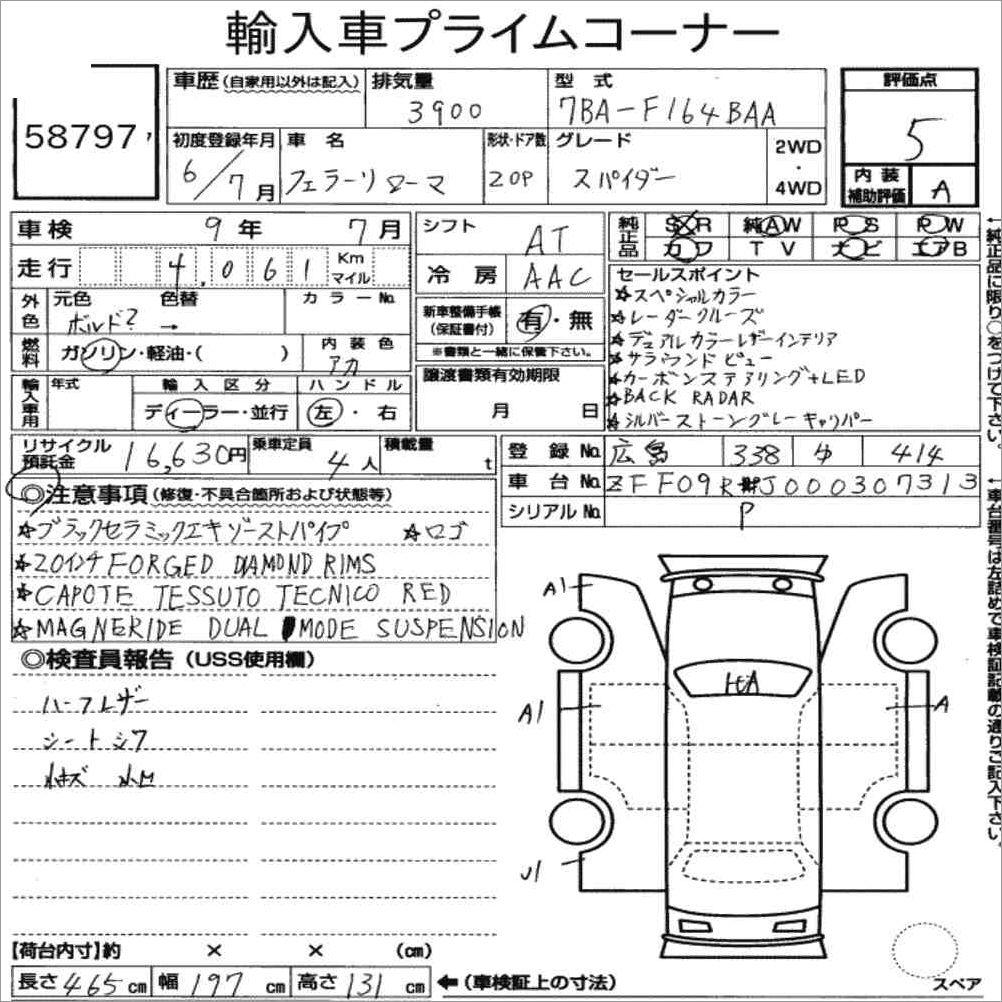 輸入車プライムコーナー
58797
車歴(自家用以外は記入) 排気量 3900 型式 7BA-F164BAA
初度登録年月 6/7月 車名 フェラーリ ローマ 形状・ドア数 2OP グレード スパイダー 2WD・4WD
評価点 5
内装補助評価 A
車検 9年 7月
走行 4,061 Km マイル
外色 元色 ボルド? 色替 → カラーNo.
燃料 ガソリン・軽油・( ) 内装色 アカ
輸入車用 年式 輸入区分 ディーラー・並行 ハンドル 左・右
シフト AT
冷房 AAC
新車整備手帳(保証書付) 有・無
※書類と一緒に保管下さい。
譲渡書類有効期限 月 日
純正品 SR 純AW PS PW
カワ TV ナビ エアB
セールスポイント
☆スペシャルカラー
☆レーダークルーズ
☆デュアルカラーレザーインテリア
☆サラウンドビュー
☆カーボンステアリング+LED
☆BACK RADAR
☆シルバーストーングレーキャリパー
←純正品に限り○をつけて下さい。
リサイクル預託金 16,630円 乗車定員 4人 積載量 t
登録No. 広島 338 414
車台No. ZFF09R J000307313
P
シリアルNo.
←車台番号は左詰めで車検証記載の通りご記入下さい。
◎注意事項(修復・不具合箇所および状態等)
☆ブラックセラミックエキゾーストパイプ ☆ロゴ
☆20インチFORGED DIAMOND RIMS
☆CAPOTE TESSUTO TECNICO RED
☆MAGNERIDE DUAL MODE SUSPENSION
◎検査員報告(USS使用欄)
ハーフレザー
シートシワ
小キズ 小凹
A1
A1
A
U1
【荷台内寸】約 × × (cm)
長さ 465 cm 幅 197 cm 高さ 131 cm ←(車検証上の寸法)
スペア